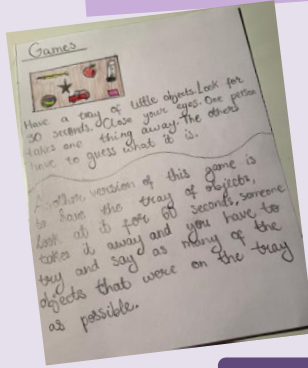 Games
Have a tray of little objects. Look for
30 seconds. Close your eyes. One person
takes one thing away. The others
have to guess what it is.
Another version of this game is
to have the tray of objects,
look at it for 60 seconds, someone
takes it away and you have to
try and say as many of the
objects that were on the tray
as possible.